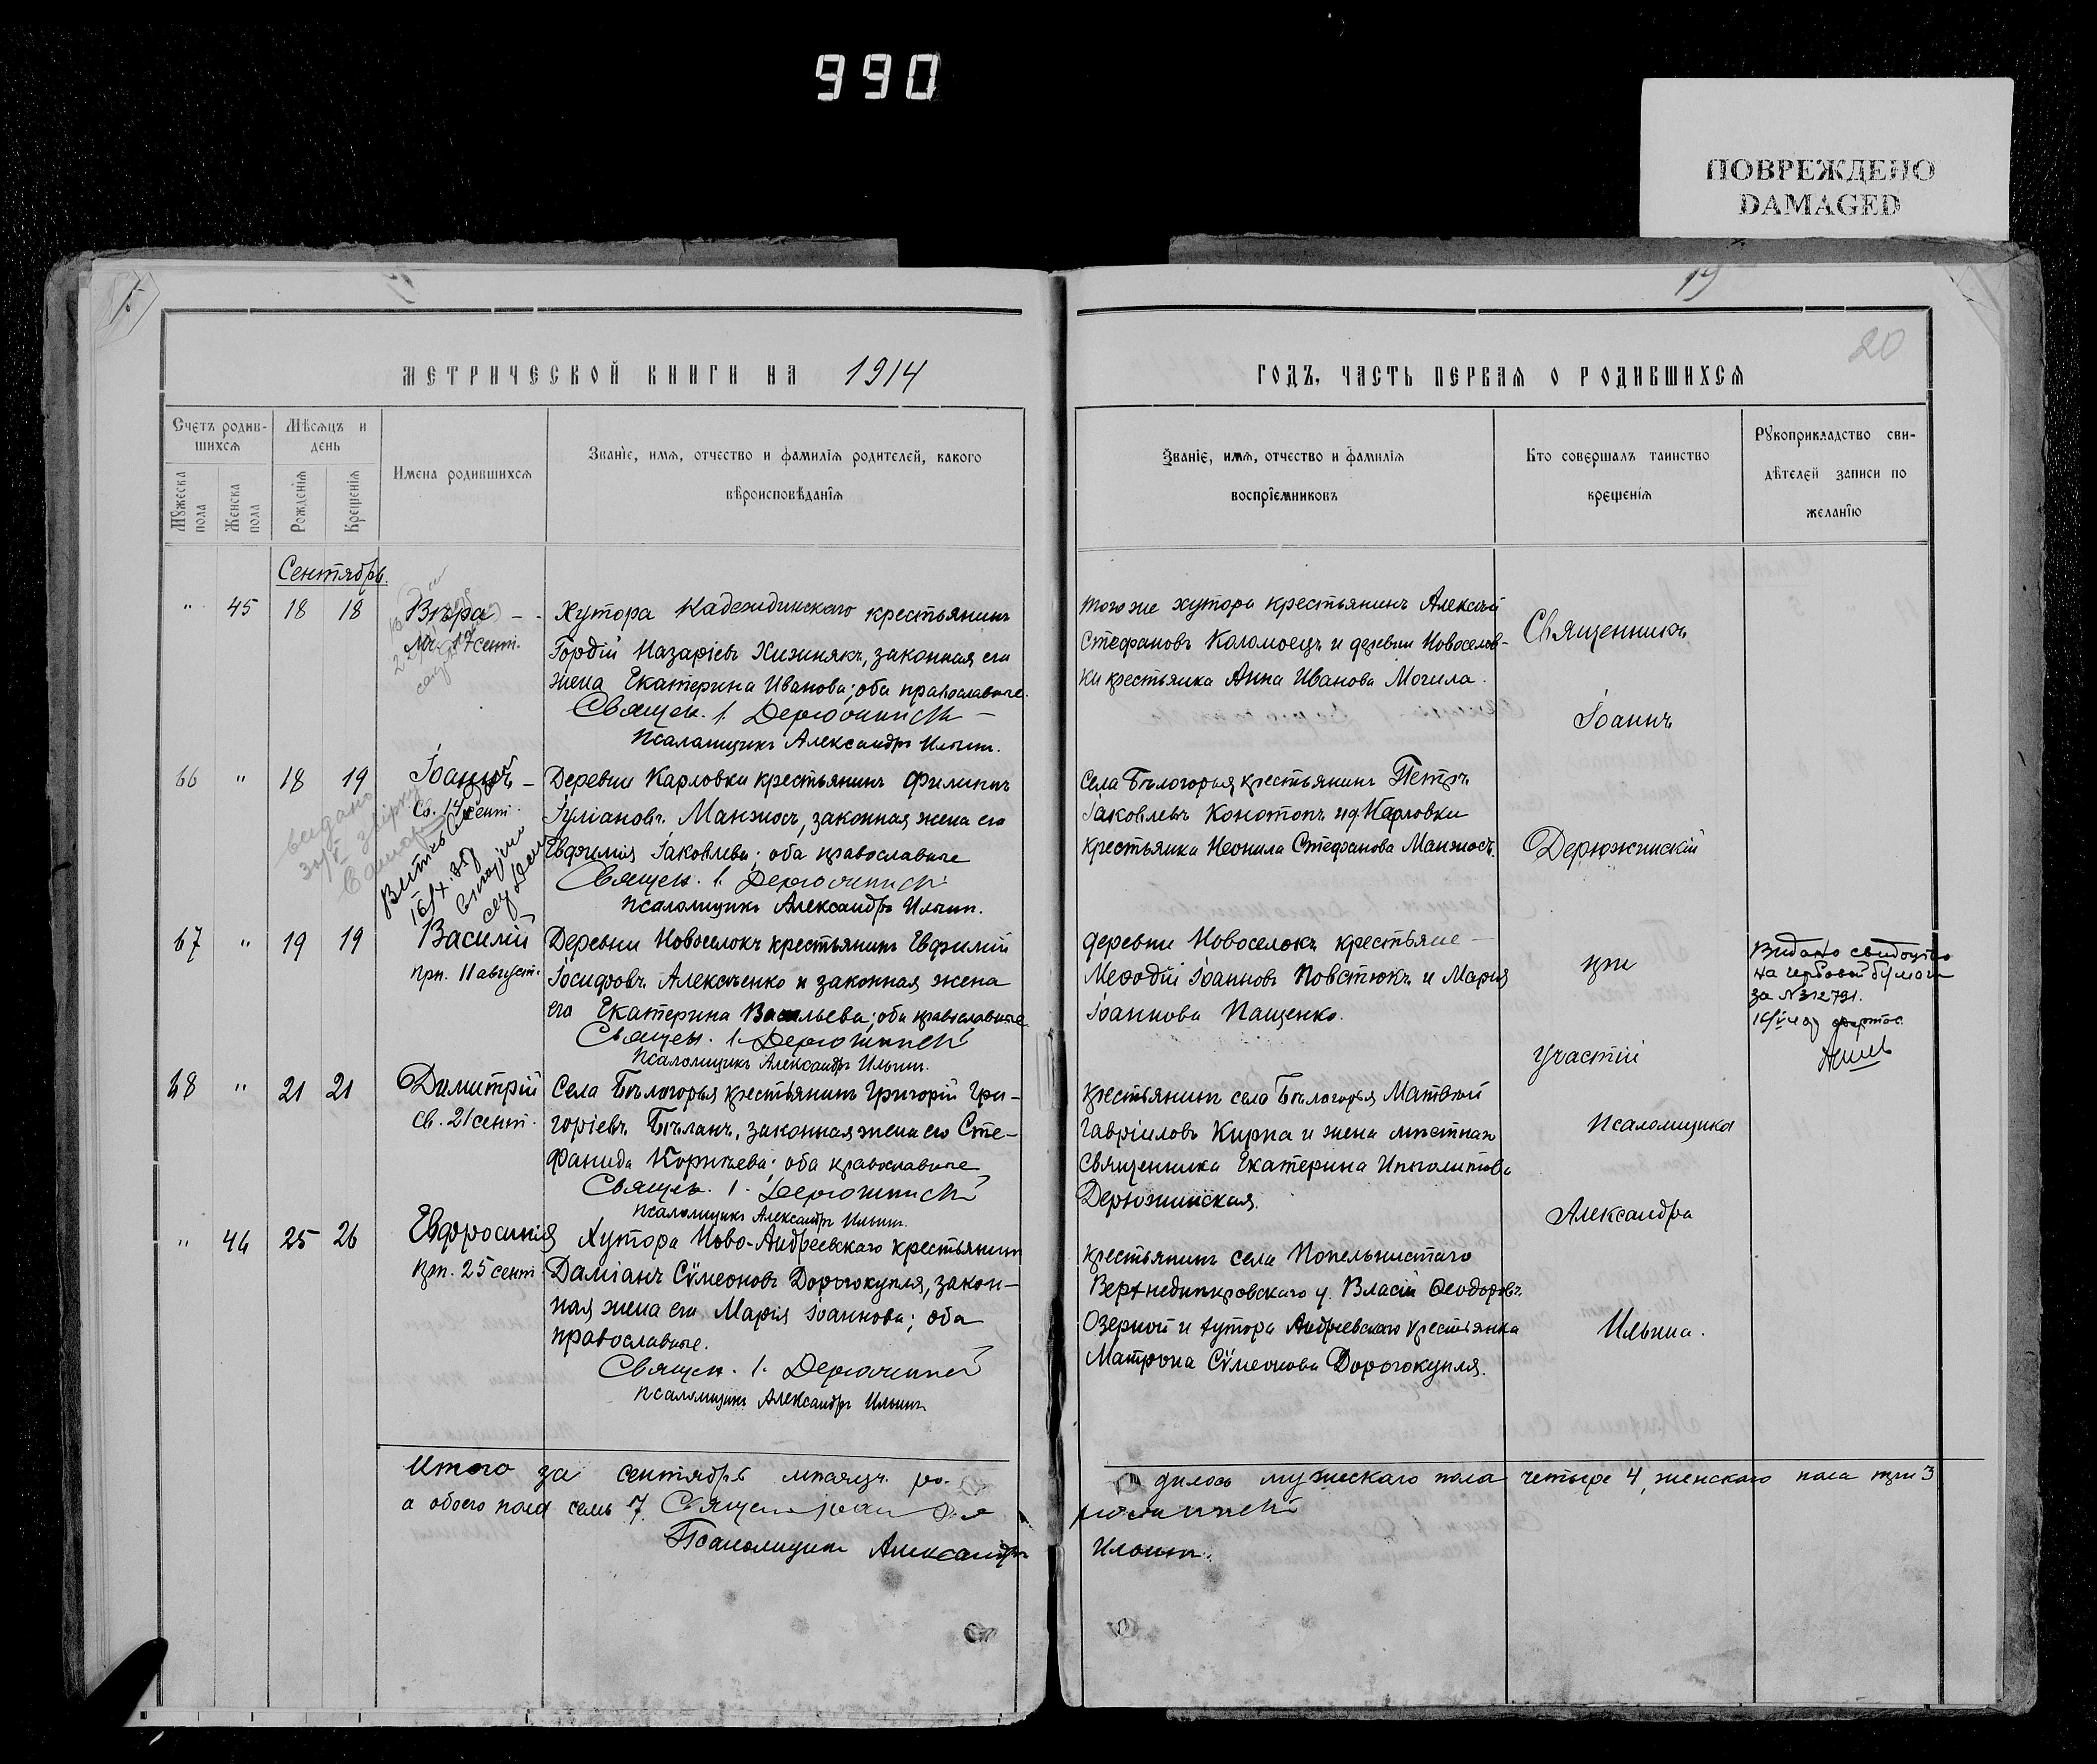 990
ПОВРЕЖДЕНО
DAMAGED
19
20
МЕТРИЧЕСКОЙ КНИГИ НА 1914
Счетъ родив-
шихся
Мужеска пола
Женска пола
Мѣсяцъ и
день
Рожденія
Крещенія
Имена родившихся
Званіе, имя, отчество и фамилія родителей, какого
вѣроисповѣданія
Сентябрь.
" 45 18 18 Вѣра
мч. 17 сент.
Хутора Надеждинскаго крестьянинъ
Гордій Назаріевъ Хижнякъ, законная его
жена Екатерина Иванова; оба православные.
Священ. І. Дерюжинскій
Псаломщикъ Александръ Ильинъ.
66 " 18 19 Іоаннъ
Св. 19 сент.
Деревни Карловки крестьянинъ Филиппъ
Іуліановъ Манжосъ, законная жена его
Евфимія Іаковлева; оба православные
Священ. І. Дерюжинскій
Псаломщикъ Александръ Ильинъ.
67 " 19 19 Василій
прп. 11 август.
Деревни Новоселокъ крестьянинъ Евфимій
Іосифовъ Алексѣенко и законная жена
его Екатерина Васильева; оба православные
Священ. І. Дерюжинскій
Псаломщикъ Александръ Ильинъ.
68 " 21 21 Димитрій
Св. 21 сент.
Села Бѣлогорья крестьянинъ Григорій Гри-
горіевъ Бѣланъ, законная жена его Сте-
фанида Корнѣева; оба православные
Священ. І. Дерюжинскій
Псаломщикъ Александръ Ильинъ.
" 46 25 26 Евфросинія
прп. 25 сент.
Хутора Ново-Андреевскаго крестьянинъ
Даміанъ Сѵмеоновъ Дорогокупля, закон-
ная жена его Марія Іоаннова; оба
православные.
Священ. І. Дерюжинскій
Псаломщикъ Александръ Ильинъ
Итого за сентябрь мѣсяцъ ро-
а обоего пола семь 7. Священ
Псаломщикъ Александръ
ГОДЪ, ЧАСТЬ ПЕРВАЯ О РОДИВШИХСЯ
Званіе, имя, отчество и фамилія
воспріемниковъ
Кто совершалъ таинство
крещенія
Рукоприкладство сви-
дѣтелей записи по
желанію
того же хутора крестьянинъ Алексѣй
Стефановъ Коломоецъ и деревни Новоселов-
ки крестьянка Анна Иванова Могила.
села Бѣлогорья крестьянинъ Петръ
Іаковлевъ Конотопъ и д. Карловки
крестьянка Неонила Стефанова Манжосъ.
деревни Новоселокъ крестьяне
Меѳодій Іоанновъ Повстюкъ и Марія
Іоаннова Пащенко.
крестьянинъ села Бѣлогорья Матвѣй
Гавріиловъ Кирпа и жена мѣстнаго
священника Екатерина Ипполитова
Дерюжинская.
крестьянинъ села Попельнистаго
Верхнеднѣпровскаго у. Власій Ѳеодоровъ
Озерной и хутора Андреевскаго крестьянка
Матрона Сѵмеонова Дорогокупля.
Священникъ
Іоаннъ
Дерюжинскій
при
участіи
Псаломщика
Александра
Ильина.
Видано свидоцтво
за №312791.
дилось мужескаго пола четыре 4, женскаго пола три 3
Ильинъ.